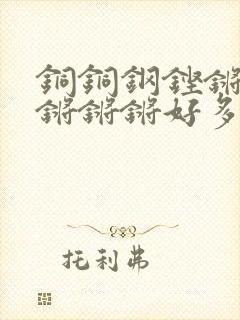 銅銅鋼鏗鏘
鏘鏘鏘好多
托利弗